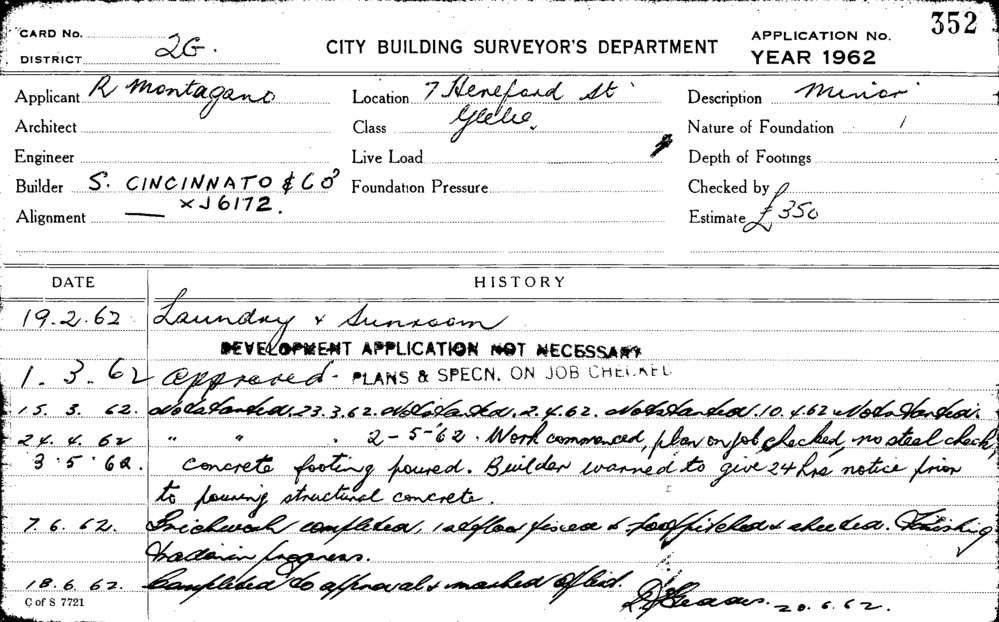 CARD No.
DISTRICT 2G.
CITY BUILDING SURVEYOR'S DEPARTMENT
APPLICATION No. 352
YEAR 1962
Applicant R Montagano
Location 7 Hereford St
Description Minor
Architect
Class Glebe.
Nature of Foundation
Engineer
Live Load
Depth of Footings
Builder S. CINCINNATO & CO
Foundation Pressure
Checked by
Alignment — XJ6172.
Estimate £350
DATE HISTORY
19.2.62 Laundry & Sunroom
DEVELOPMENT APPLICATION NOT NECESSARY
1.3.62 approved - PLANS & SPECN. ON JOB CHECKED
15.3.62. Not started. 23.3.62. Not started. 2.4.62. Not started. 10.4.62 Not started.
24.4.62 " " . 2-5-'62. Work commenced, plan on job checked, no steel check,
3.5.62. concrete footing poured. Builder warned to give 24 hrs notice prior
to pouring structural concrete.
7.6.62. Brickwork completed, floor & roof pitched & sheeted. Finishing
trades in progress.
18.6.62. Completed to approval & marked off list.
20.6.62.
C of S 7721